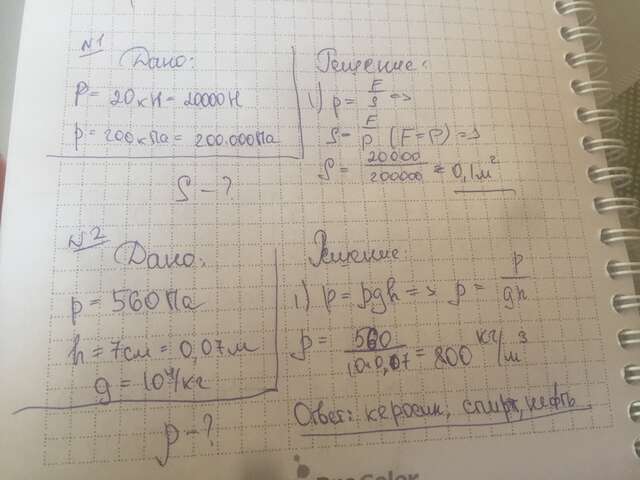 N1 Дано:
P = 20кН = 20000Н
p = 200кПа = 200.000Па
S - ?
Решение:
1) p = F/S =>
S = F/p (F=P) =>
S = 20000/200000 = 0,1м²
N2 Дано:
p = 560Па
h = 7см = 0,07м
g = 10Н/кг
ρ - ?
Решение:
1) p = ρgh => ρ = p/gh
ρ = 560/10·0,07 = 800 кг/м³
Ответ: керосин, спирт, нефть